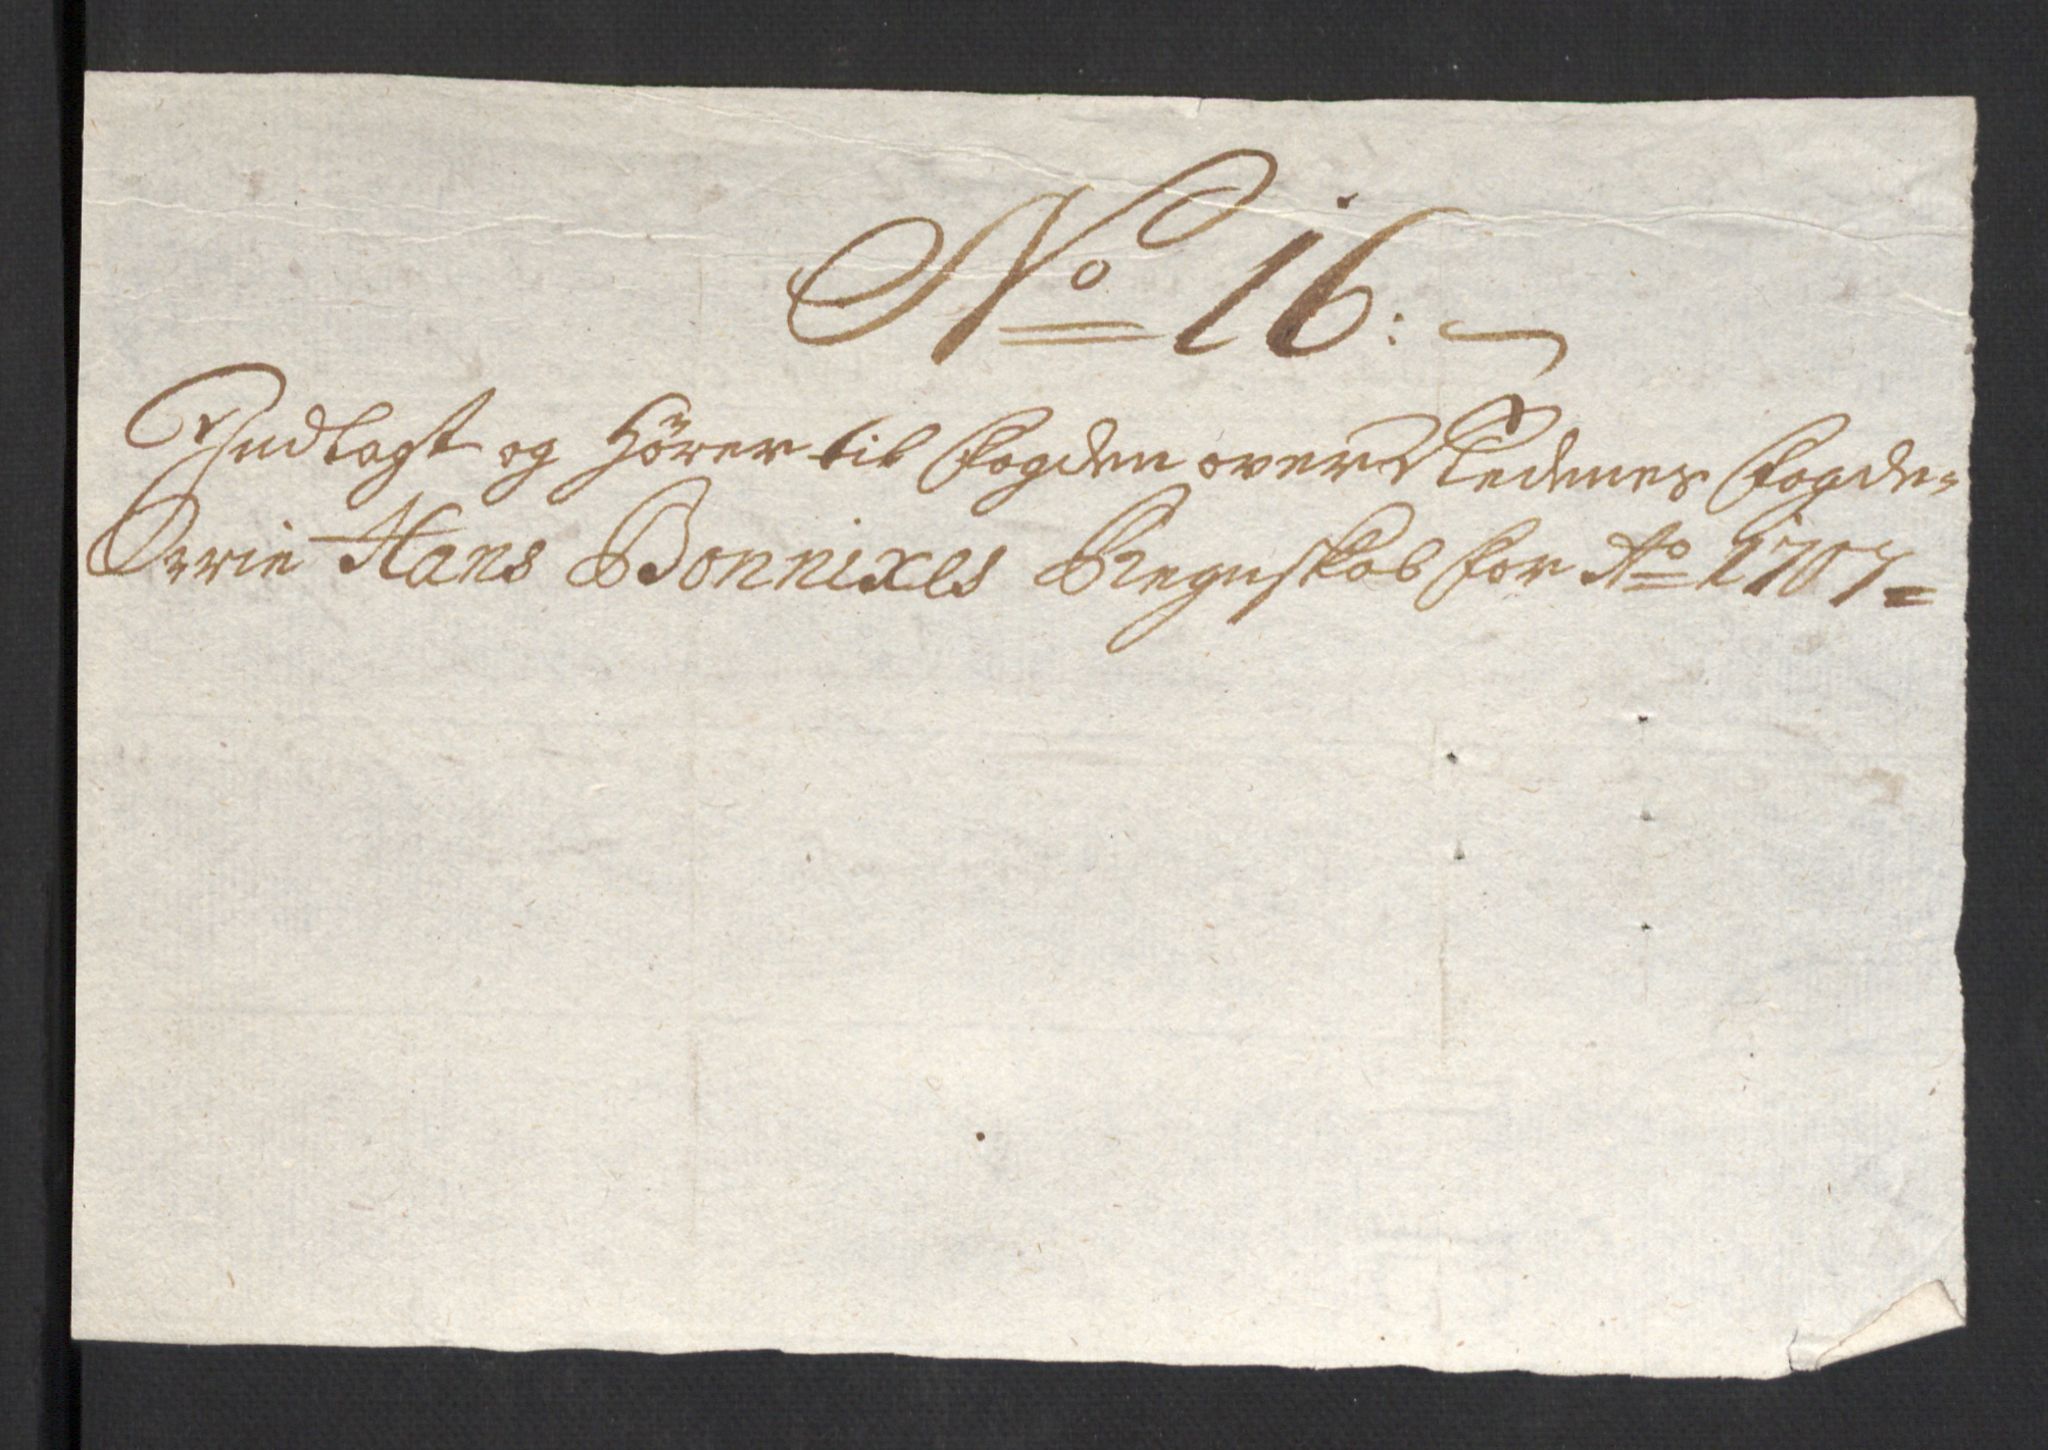 No 16:
Indlagt og hörer til Fogden over Nedenes Fogde=
Errie Hans Bonnixes Regnskab for Ao 1707=